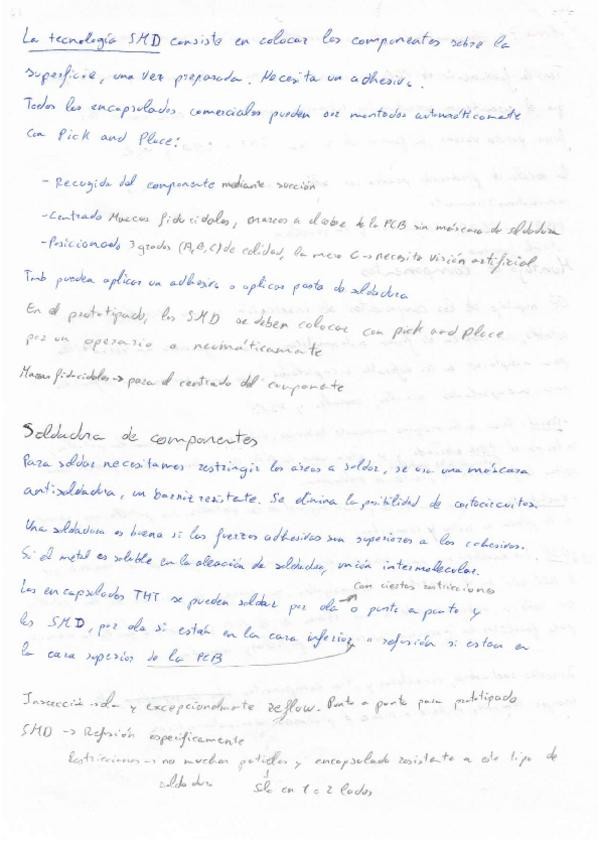 La tecnología SMD consiste en colocar los componentes sobre la
superficie, una vez preparada. Necesita un adhesivo.
Todos los encapsulados comerciales pueden ser montados automáticamente
con Pick and Place:
- Recogida del componente mediante succión
- Centrado Marcas fiducidales, marcas a el cobre de la PCB sin máscara de soldadura
- Posicionado 3 grados (A, B, C) de calidad, la mera C → necesita visión artificial
Tmb pueden aplicar un adhesivo o aplicar pasta de soldadura
En el prototipado, los SMD se deben colocar con pick and place
por un operario o neumáticamente
Marcas fiducidales → para el centrado del componente
Soldadura de componentes
Para soldar necesitamos restringir las áreas a soldar, se usa una máscara
antisoldadura, un barniz resistente. Se elimina la posibilidad de cortocircuitos.
Una soldadura es buena si las fuerzas adhesivas son superiores a las cohesivas.
Si el metal es soluble en la aleación de soldadura, unión intermolecular.
con ciertas restricciones
Los encapsulados THT se pueden soldar por ola o punto a punto y
los SMD, por ola si están en la cara inferior o refusión si estan en
la cara superior de la PCB
Inserción → ola y excepcionalmente reflow. Punto a punto para prototipado
SMD → Refusión específicamente
Restricciones → no muchos patillas y encapsulado resistente a este tipo de
soldadura
Sólo en 1 o 2 lados